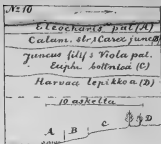 No 10
Eleocharis pal. (A)
Calam. str., Carex junc (B)
Juncus filif., Viola pal.
Euphr. bottnica (C)
Harvaa lepikköä (D)
10 askelta
A B C D